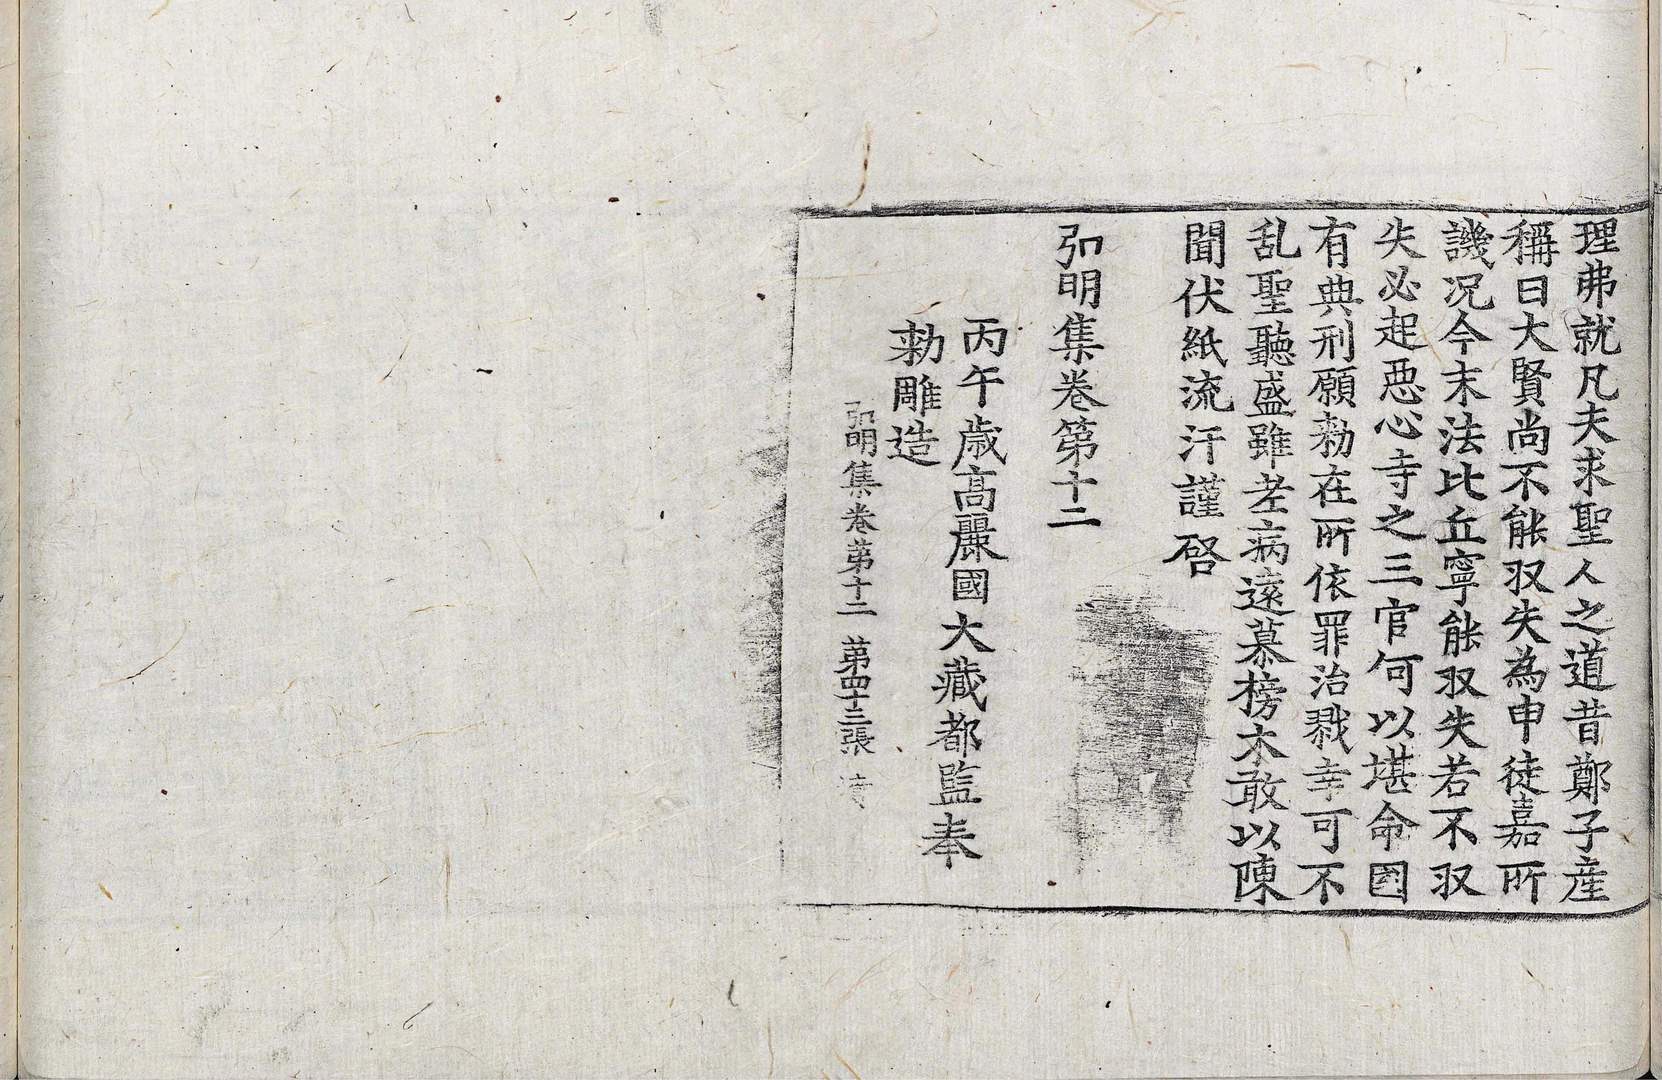 理弗就凡夫求聖人之道昔鄭子産
稱曰大賢尚不能収失為申徒嘉所
譏况今末法比丘寧能収失若不収
失必起惡心寺之三官何以堪命國
有典刑願勅在所依罪治戮幸可不
乱聖聽盛雖老病遠慕榜木敢以陳
聞伏紙流汗謹啓
弘明集卷第十二
丙午歲高麗國大藏都監奉
勅雕造
弘明集卷第十二 第四十三張